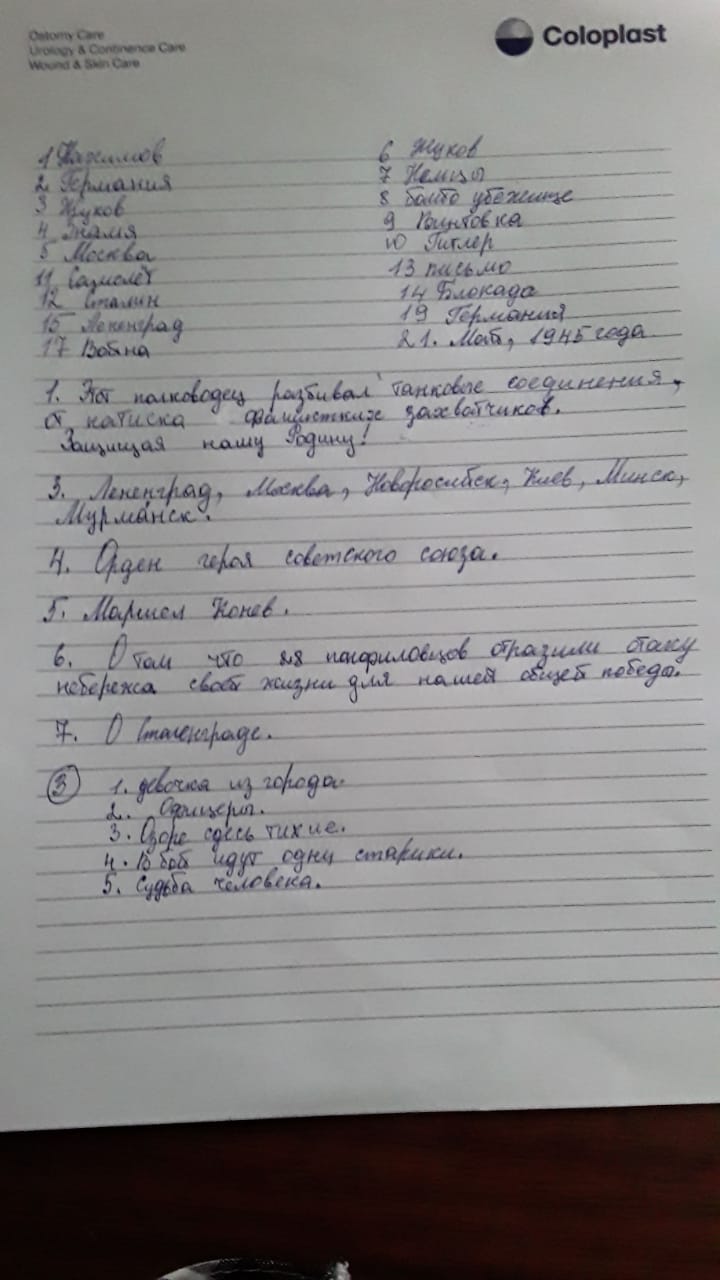 Ostomy Care
Urology & Continence Care
Wound & Skin Care
Coloplast
1 Нахимов
2 Германия
3 Жуков
4 Знамя
5 Москва
11 Самолёт
12 Сталин
15 Лененград
17 Война
6 Жуков
7 Немцы
8 бомбо убежище
9 Винтовка
10 Гитлер
13 письмо
14 Блокада
19 Германия
21. Май, 1945 года
1. Этот полководец разбивал танковые соединения,
от натиска фашистких захватчиков.
Защищая нашу Родину!
3. Лененград, Москва, Новоросибск, Киев, Минск,
Мурманск.
4. Орден героя советского союза.
5. Маршел Конев.
6. О том что 28 панфиловцов отразили отаку
небережа своей жизни для нашей общей победы.
7. О Сталенграде.
3
1. девочка из города.
2. Офицеры.
3. Озоре сдесь тихие.
4. В бой идут одни старики.
5. Судьба человека.